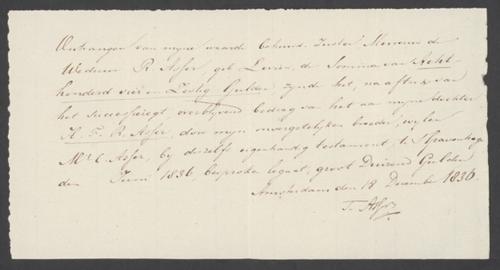 Ontvangen van mijne waarde behuwd Zuster Mevrouw de
Weduwe R. Asser, geb. Levin, de Somma van Acht
honderd vier en Zestig Gulden, zynde het, na aftrek van
het Successieregt, overblyvend bedrag van het aan mijne dochter
K. T. R. Asser, door myn onvergetelyken broeder, wylen
Mr. C. Asser, by deszelfs eigenhandig testament, te 's Gravenhage
den Juni 1836 besproken legaat, groot Duizend Gulden
Amsterdam den 18 December 1836.
T. Asser